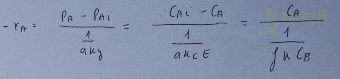 - r_A = (P_A - P_{Ai}) / (1 / (a k_g)) = (C_{Ai} - C_A) / (1 / (a k_C E)) = C_A / (1 / (f k C_B))